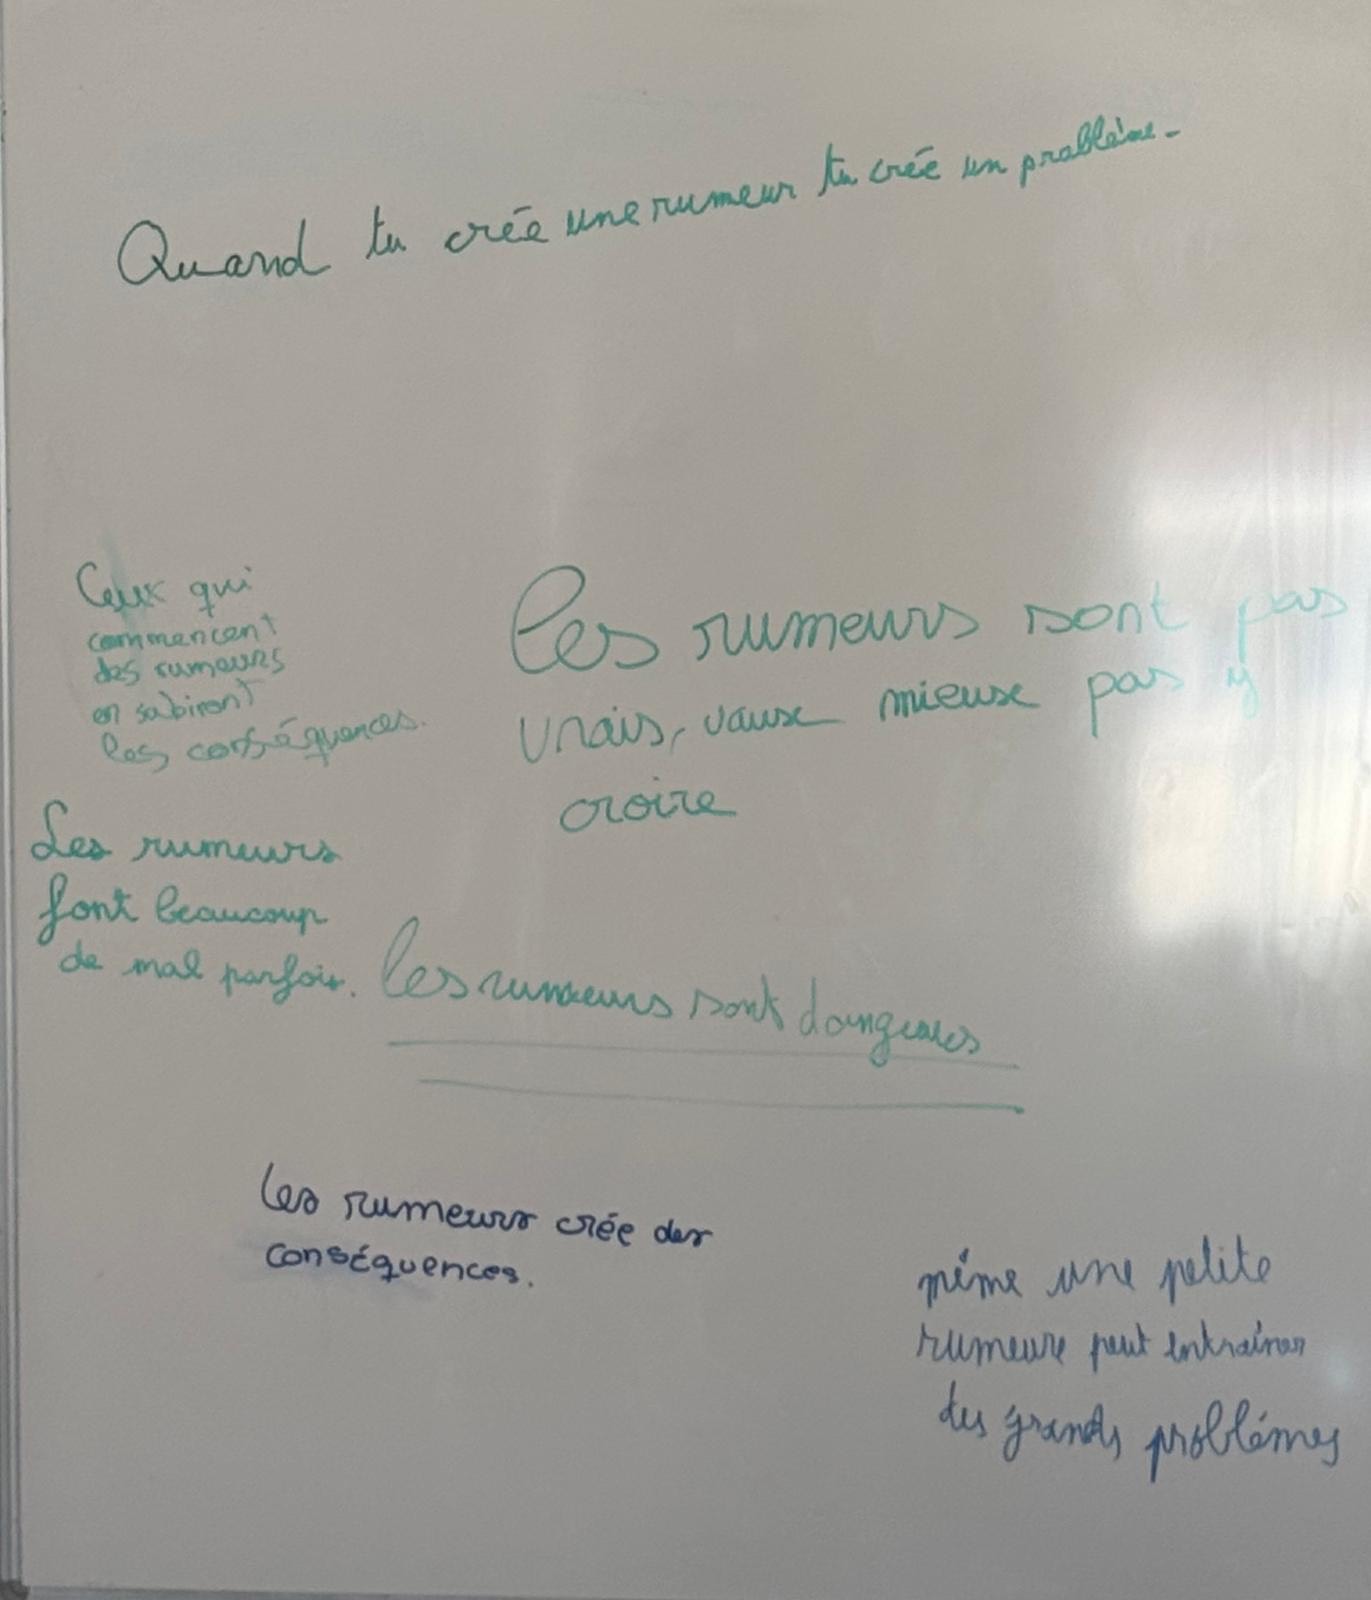 Quand tu crée une rumeur tu crée un problème.
Ceux qui
commencent
des rumeurs
en subiront
les conséquences.
les rumeurs sont pas
vrais, vause mieuse pas y
croire
Les rumeurs
font beaucoup
de mal parfois.
les rumeurs sont
les rumeurs crée des
conséquences.
même une petite
rumeure peut entraîner
des grands problémes